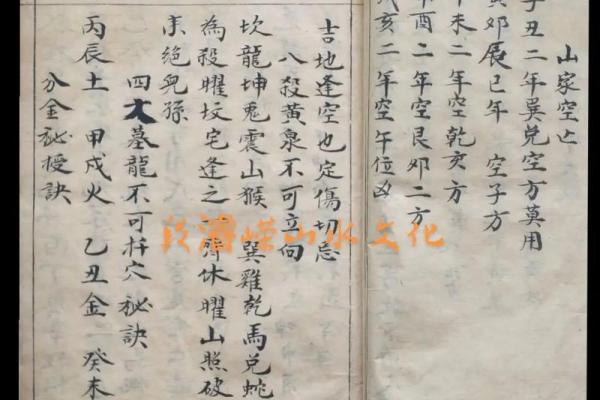 山家空亡
子丑二年巽兑空方莫用
寅卯辰巳年 空子方
午未二年空乾亥方
酉二年空艮卯二方
戌亥二年空午位凶
吉地逢空也定傷切忌
八殺黃泉不可立向
坎龍坤兔震山猴 巽雞乾馬兑蛇
為殺曜坟宅逢之 齊休曜山照破
絕兒孫
四大墓龍不可扦穴秘訣
丙辰土 甲戌火 乙丑金 癸未
分金秘授訣
山水文化